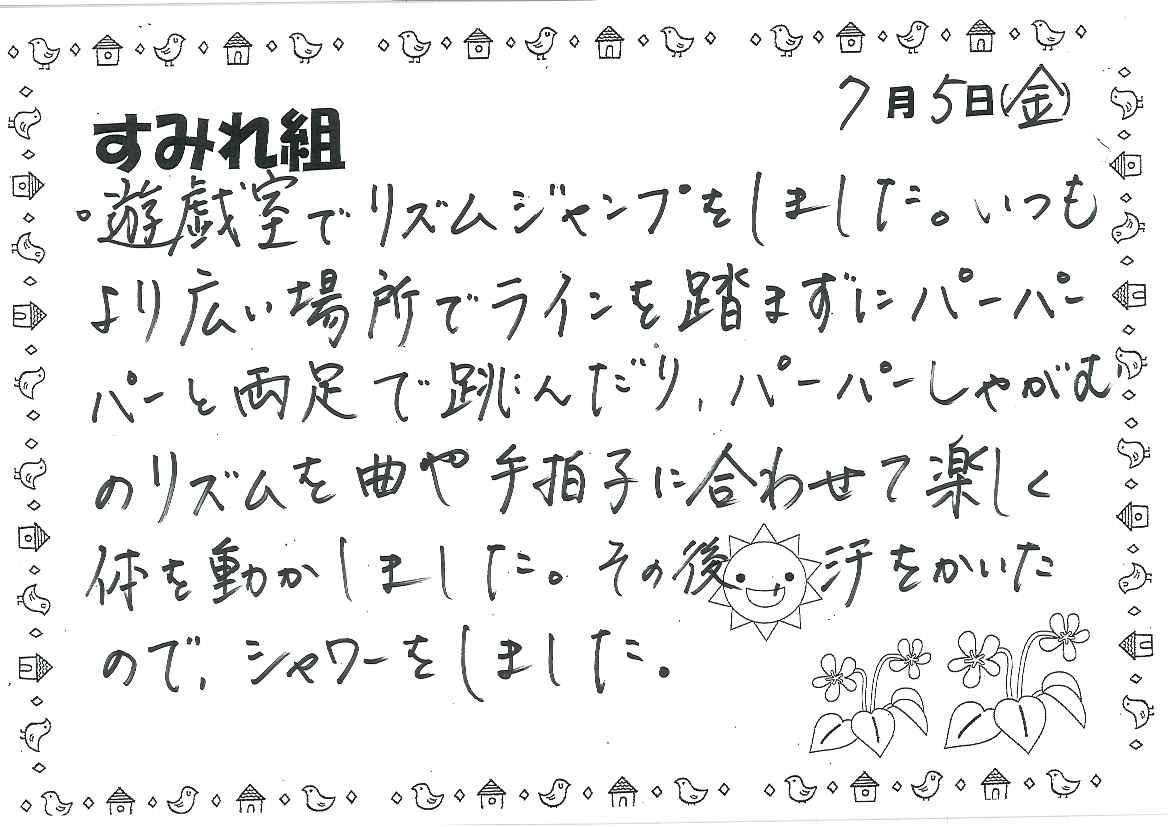 7月5日(金)
すみれ組
・遊戯室でリズムジャンプをしました。いつも
より広い場所でラインを踏まずにパーパー
パーと両足で跳んだり、パーパーしゃがむ
のリズムを曲や手拍子に合わせて楽しく
体を動かしました。その後、汗をかいた
ので、シャワーをしました。